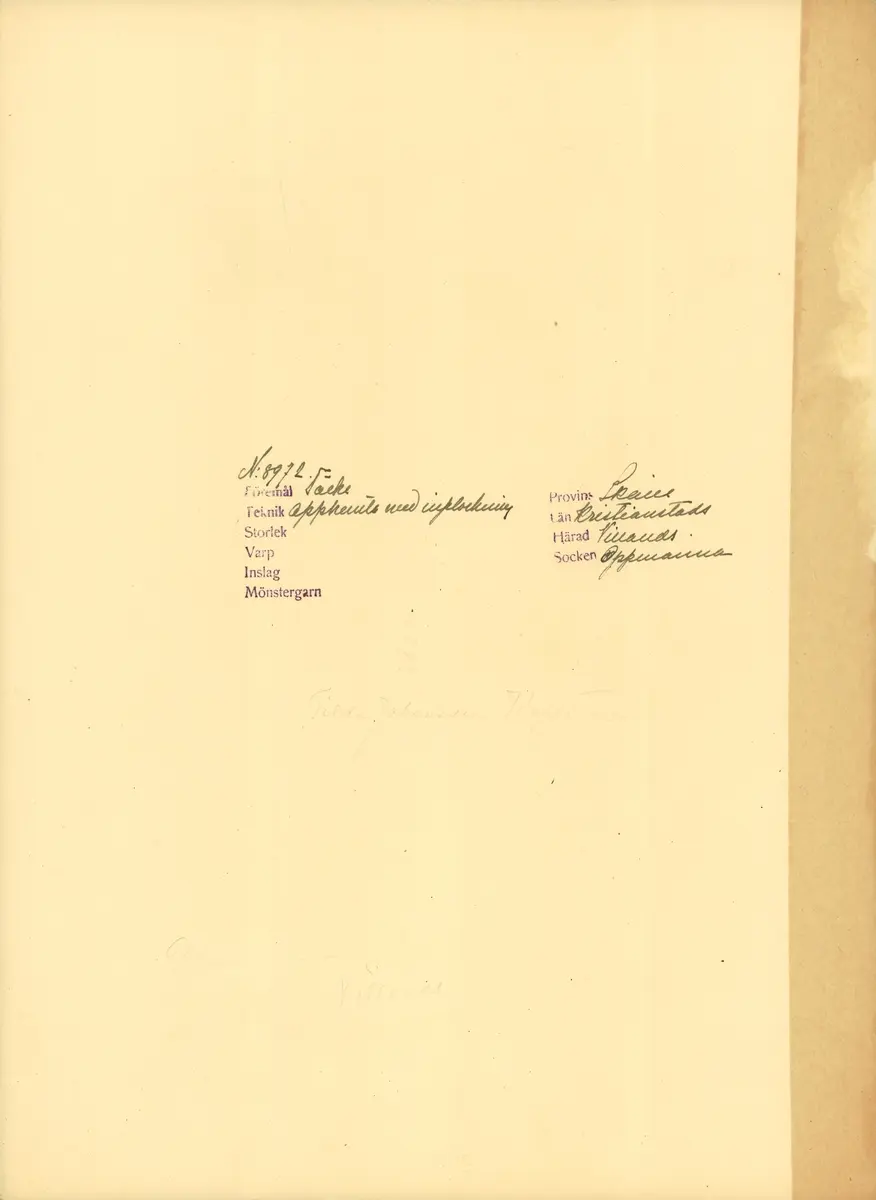 N:8972.
Föremål Täcke
Teknik Opphemta med inplockning
Storlek
Varp
Inslag
Mönstergarn
Provins Skåne
Län Kristianstads
Härad Villands.
Socken Oppmanna
Villands